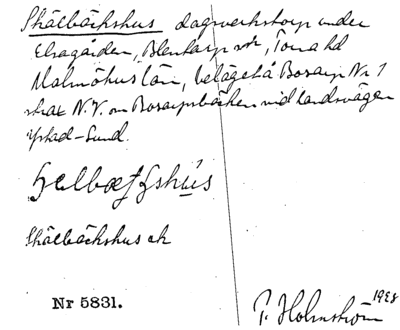 Skälbäckshus dagsverkstorp under
Elsagården, Blentarp sn, Torna hd
Malmöhus län, beläget å Bosarp Nr 1
strax N.V. om Bosarpsbäcken vid landsvägen
Ystad-Lund.
Skälbäckshus ek
Nr 5831.
P. Holmström 1928